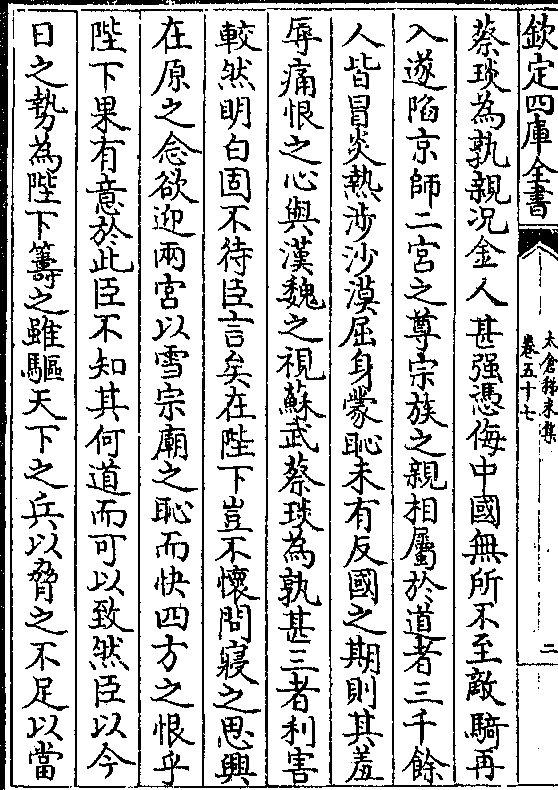 欽定四庫全書
太倉稊米集
卷五十七
二
蔡琰為孰親况金人甚强憑侮中國無所不至敵騎再
入遂陷京師二宮之尊宗族之親相屬於道者三千餘
人皆冒炎熱涉沙漠屈身蒙恥未有反國之期則其羞
辱痛恨之心與漢魏之視蘇武蔡琰為孰甚三者利害
較然明白固不待臣言矣在陛下豈不懷問寢之思興
在原之念欲迎兩宮以雪宗廟之恥而快四方之恨乎
陛下果有意於此臣不知其何道而可以致然臣以今
日之勢為陛下籌之雖驅天下之兵以脅之不足以當